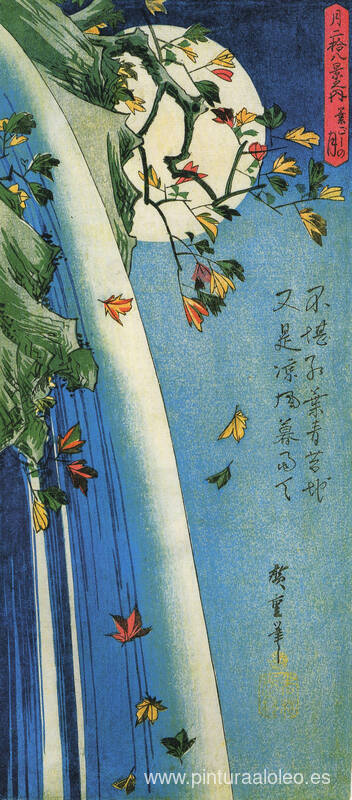 月二拾八景之内 葉ごしの月
不堪紅葉青苔地
又是涼風暮雨天
廣重筆
www.pinturaaloleo.es